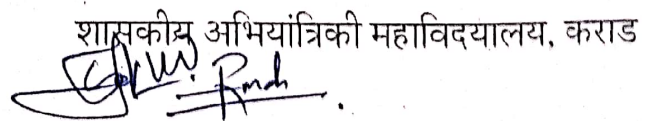 शासकीय अभियांत्रिकी महाविदयालय, कराड